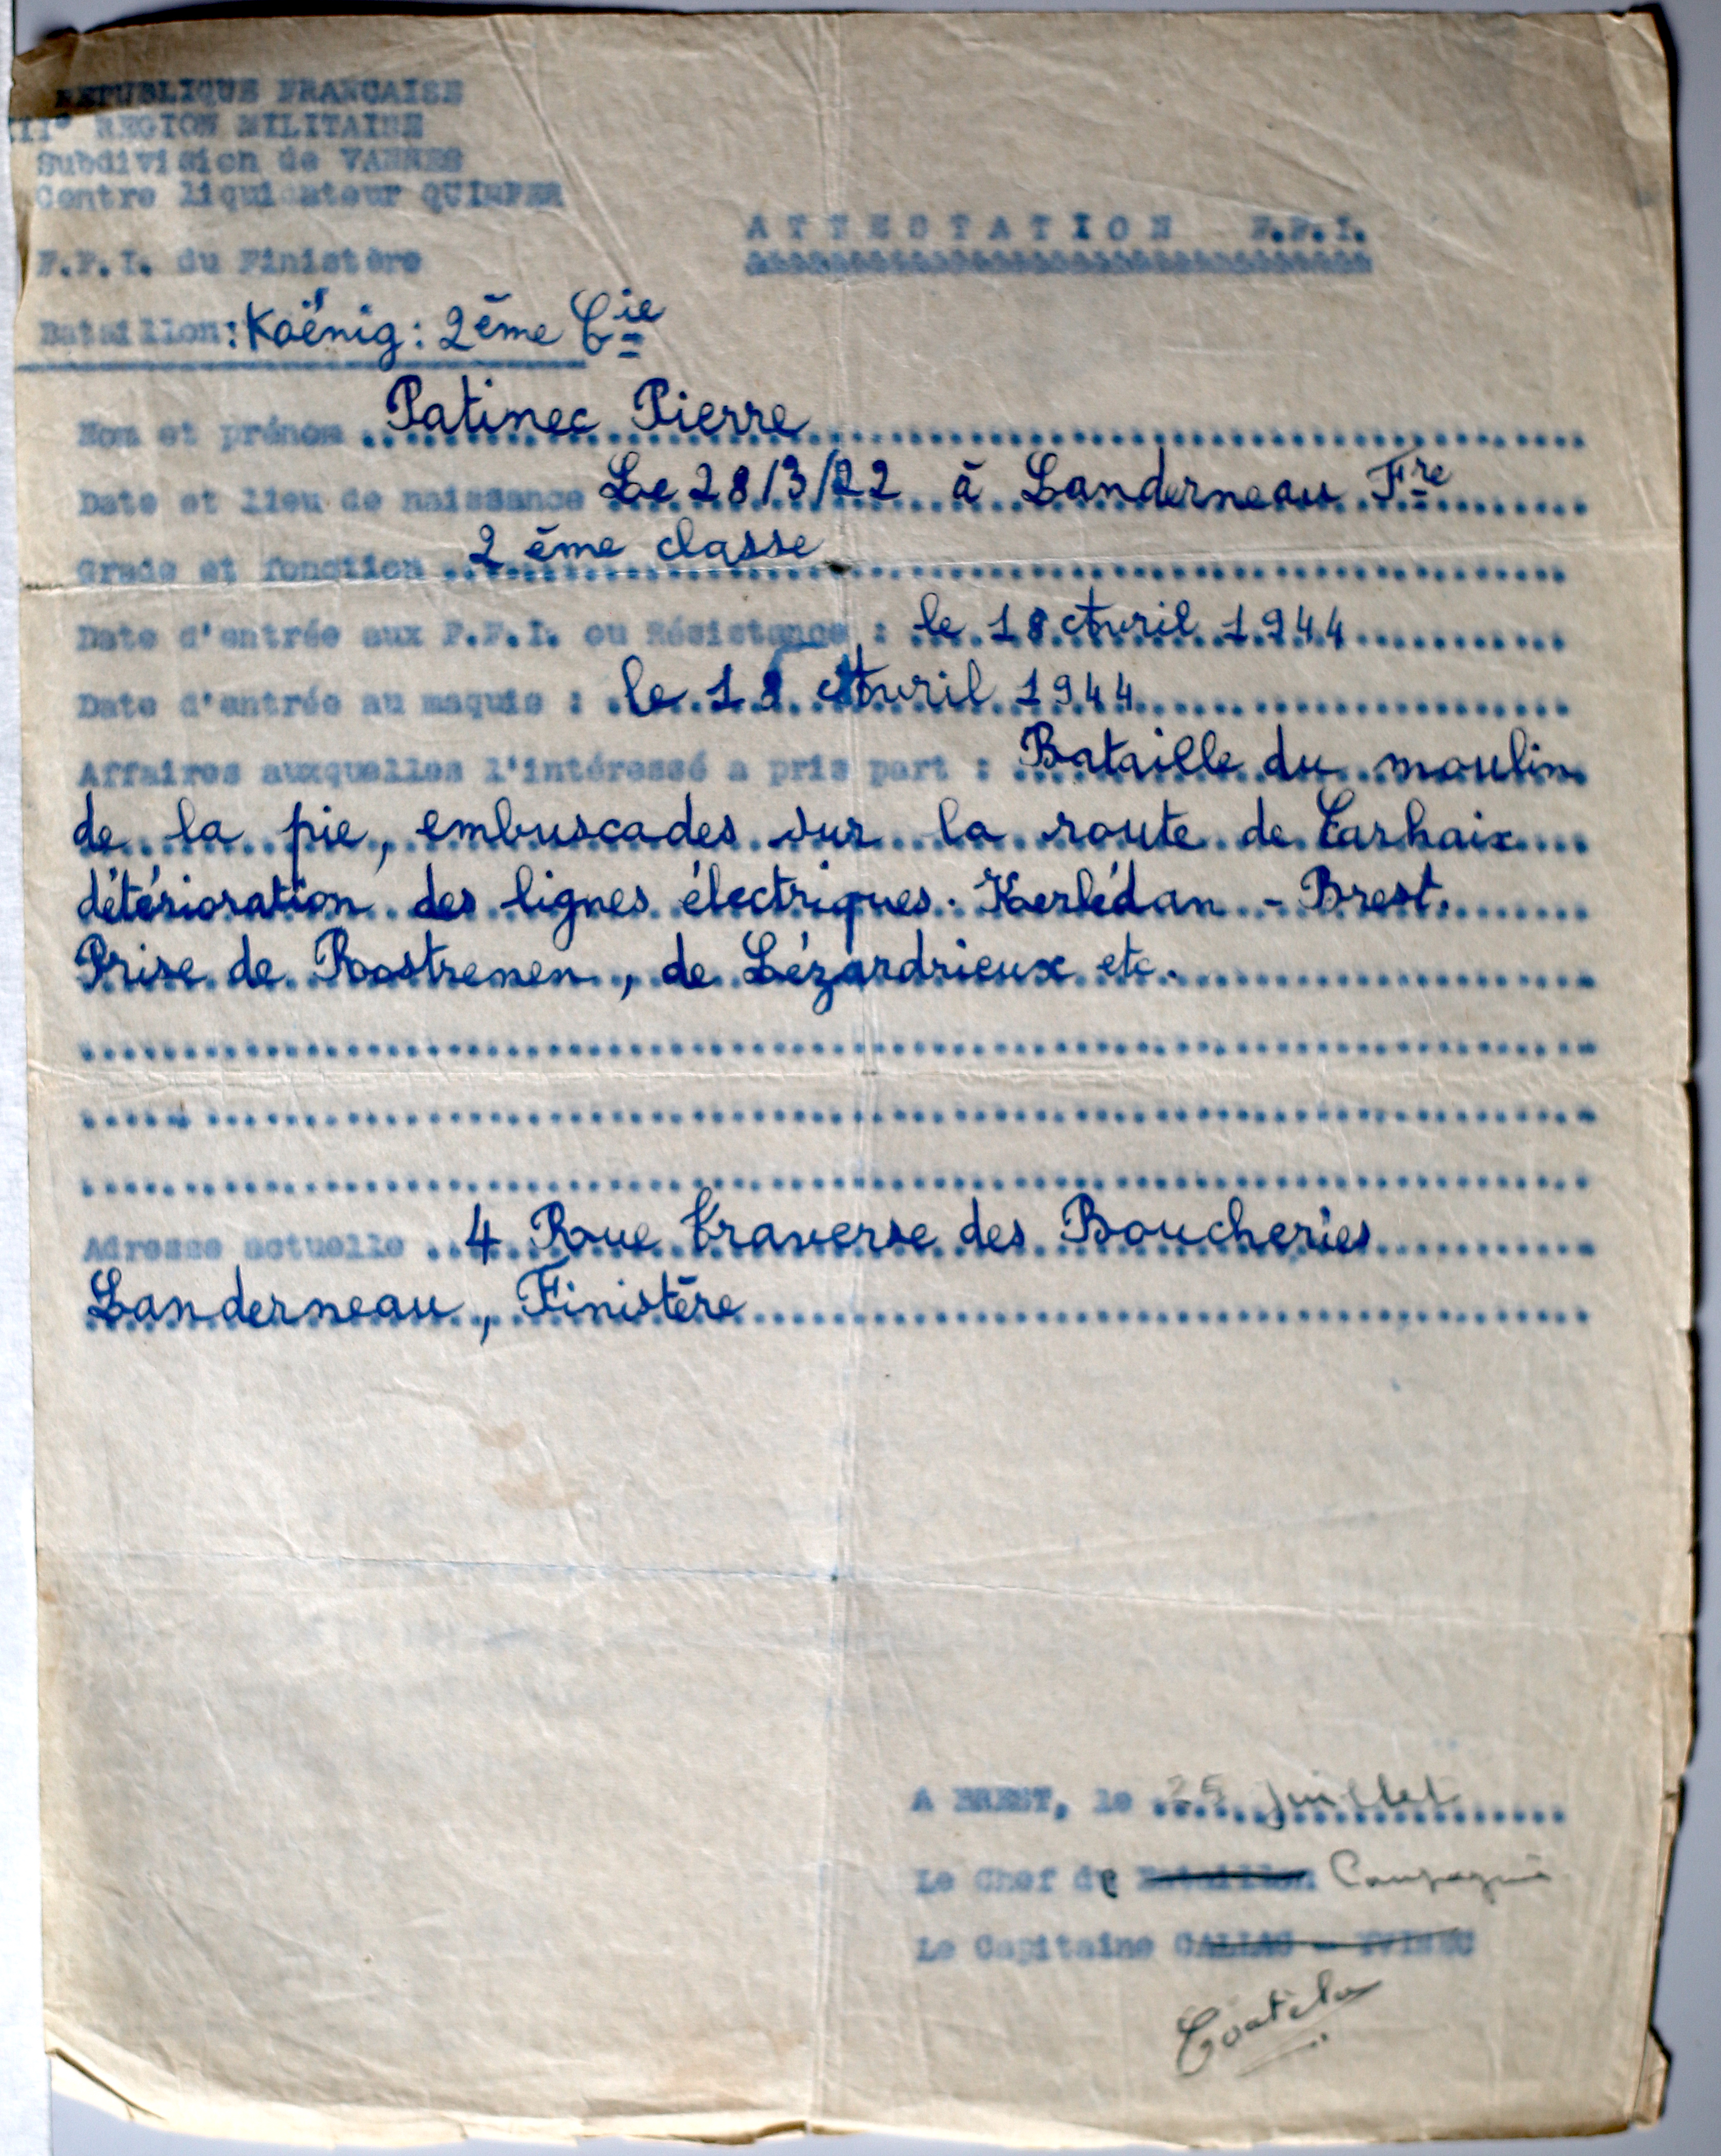 REPUBLIQUE FRANCAISE
II° REGION MILITAIRE
Subdivision de VANNES
Centre liquidateur QUIMPER
F.F.I. du Finistère
ATTESTATION F.F.I.
Bataillon : Koënig : 2ème Cie
Nom et prénom Patinec Pierre
Date et lieu de naissance Le 28/3/22 à Landerneau Fre
Grade et fonction 2ème classe
Date d'entrée aux F.F.I. ou Résistance : le 18 Avril 1944
Date d'entrée au maquis : le 18 Avril 1944
Affaires auxquelles l'intéressé a pris part : Bataille du moulin
de la pie, embuscades sur la route de Carhaix
détérioration des lignes électriques. Kerlédan - Brest.
Prise de Rostrenen, de Lézardrieux etc.
Adresse actuelle 4 Rue Traverse des Boucheries
Landerneau, Finistère
A BREST, le 25 juillet
Le Chef de Bataillon Compagnie
Le Capitaine